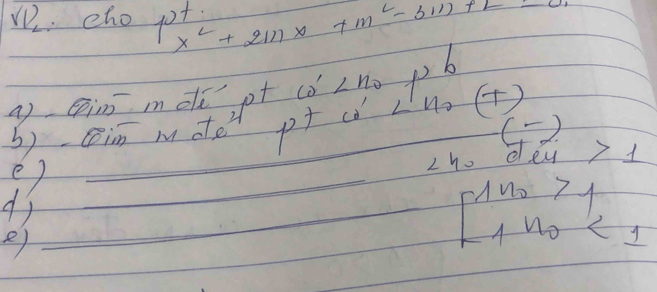 VD2: cho pt:
x² + 2mx + m² - 3m + 2 = 0.
a) - Tìm m để pt có 2 no pb
b) - Tìm m để pt có 2 no (+)
c) (-)
d) 2 no đều > 1
e) [ 1 no > 1
1 no < 1